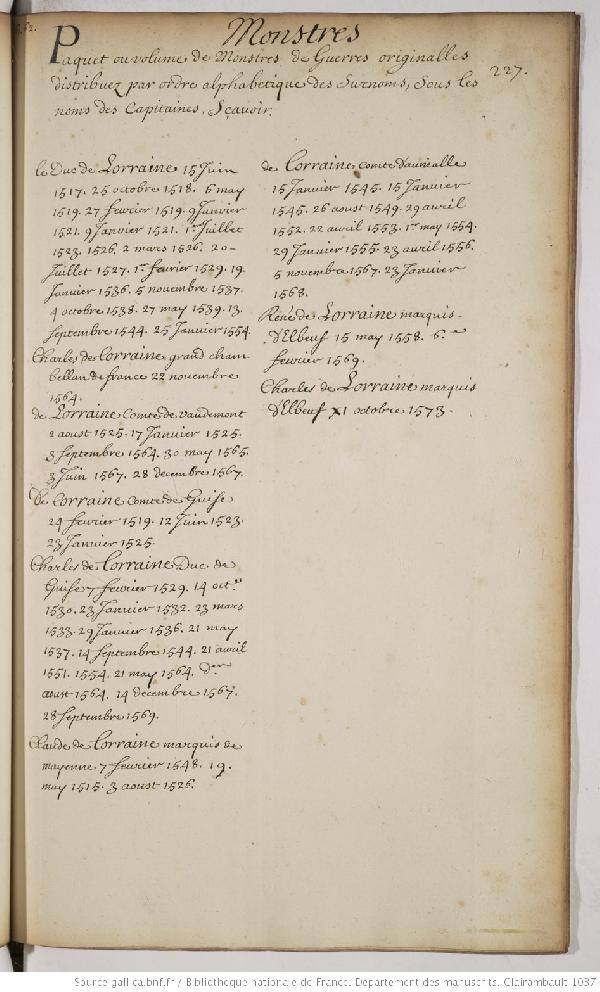 Monstres
Paquet ou volume de Monstres de Guerres originalles
distribuez par ordre alphabetique des Surnoms, Sous les
noms des Capitaines, Sçavoir.
227.
le Duc de Lorraine 15 Juin
1517. 25 octobre 1518. 6 may
1519. 27 fevrier 1519. 9 Janvier
1521. 9 Janvier 1521. 1er Juillet
1523. 1526. 2 mars 1526. 20
Juillet 1527. 1er fevrier 1529. 19.
Janvier 1536. 5 novembre 1537.
4 octobre 1538. 27 may 1539. 13.
Septembre 1544. 25 Janvier 1554.
Charles de Lorraine grand cham
bellan de france 22 novembre
1564.
de Lorraine Comte de Vaudemont
2 aoust 1525. 17 Janvier 1525.
3 Septembre 1564. 30 may 1565.
3 Juin 1567. 28 decembre 1567.
De Lorraine Comte de Guise
24 fevrier 1519. 12 Juin 1523.
23 Janvier 1525.
Charles de Lorraine Duc de
Guise 7 fevrier 1529. 14 oct.
1530. 23 Janvier 1532. 23 mars
1533. 29 Janvier 1536. 21 may
1537. 14 Septembre 1544. 21 avril
1551. 1554. 21 may 1564. der
aoust 1564. 14 decembre 1567.
28 Septembre 1569.
Claude de Lorraine marquis de
mayenne 7 fevrier 1548. 19.
may 1515. 3 aoust 1526.
de Lorraine comte d'aumalle
15 Janvier 1545. 15 Janvier
1545. 26 aoust 1549. 29 avril
1552. 22 avril 1553. 1er may 1554.
29 Janvier 1555. 23 avril 1556.
5 novembre 1567. 23 Janvier
1568.
René de Lorraine marquis
d'Elbeuf 15 may 1558. 6.
fevrier 1569.
Charles de Lorraine marquis
d'Elbeuf XI octobre 1573.
Source gallica.bnf.fr / Bibliothèque nationale de France. Département des manuscrits. Clairambault 1037